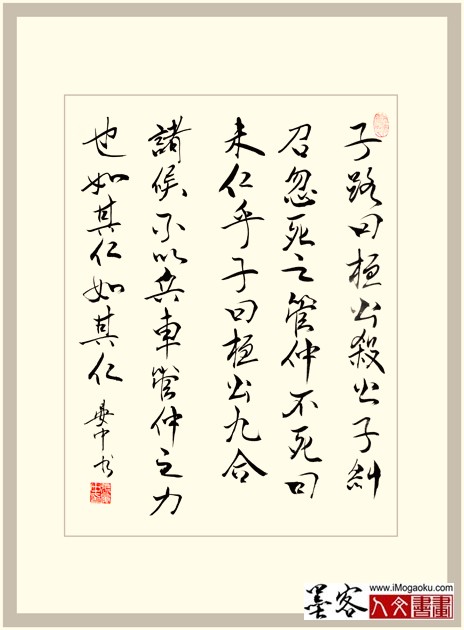 子路曰桓公殺公子糾
召忽死之管仲不死曰
未仁乎子曰桓公九合
諸侯不以兵車管仲之力
也如其仁如其仁
墨客
www.iMogaoku.com
人文書畫